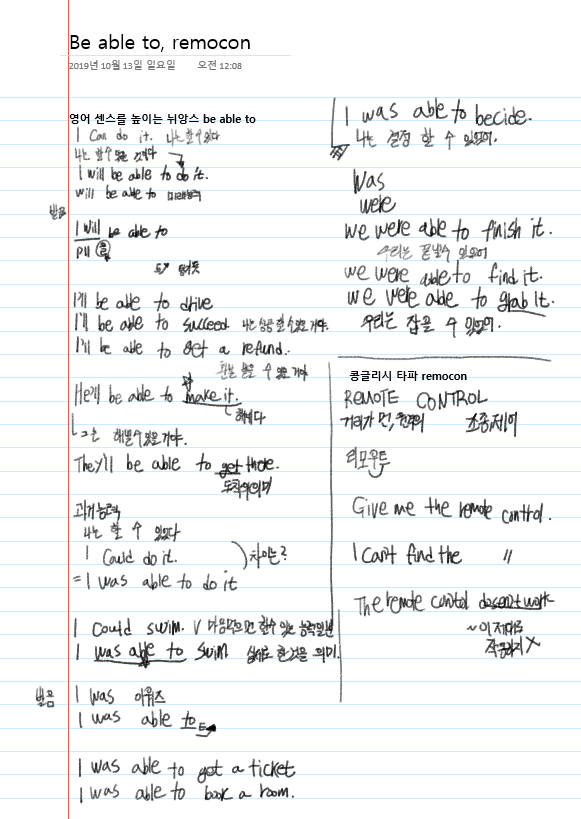 Be able to, remocon
2019년 10월 13일 일요일 오전 12:08
영어 센스를 높이는 뉘앙스 be able to
I Can do it. 나는 할 수 있다
나는 할 수 있을 것이다
I will be able to do it.
will be able to 미래능력
발음
I will be able to
do it.
I'll be able to drive
I'll be able to succeed 나는 성공 할 수 있을 거야.
I'll be able to get a refund.
환불 받을 수 있을 거야
He'll be able to make it.
해내다
그는 해낼 수 있을 거야.
They'll be able to get there.
도착의 의미
과거능력
나는 할 수 있었다
I Could do it.
차이는?
= I was able to do it
I Could swim. 마음먹으면 할 수 있는 능력일뿐
I was able to swim 실제로 한것을 의미.
발음
I was 아워즈
I was able to
I was able to get a ticket
I was able to book a room.
I was able to becide.
나는 결정 할 수 있었어.
Was
were
we were able to finish it.
우리는 끝낼 수 있었어
we were able to find it.
we were able to grab it.
우리는 잡을 수 있었어.
콩글리시 타파 remocon
REMOTE CONTROL
거리가 먼, 원격의 조종제어
리모우트
Give me the remote control.
I Can't find the 〃
The remote control doesn't work
~이 제대로
작동하지 X